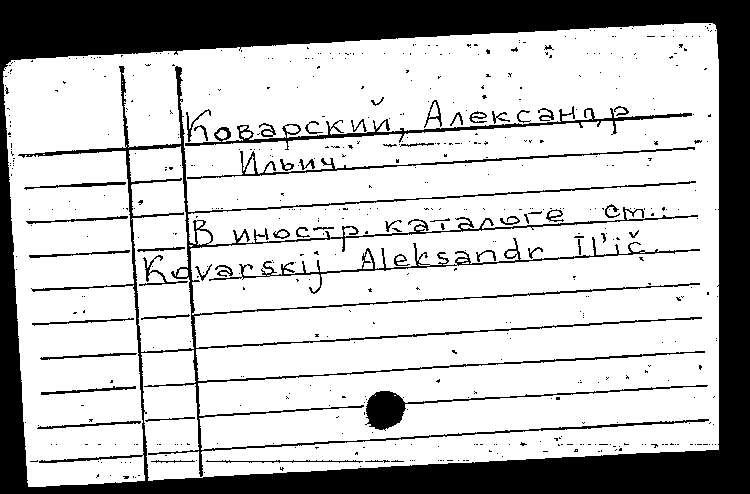 Коварский, Александр
Ильич.
В иностр. каталоге см.:
Kovarskij Aleksandr Il'ič.